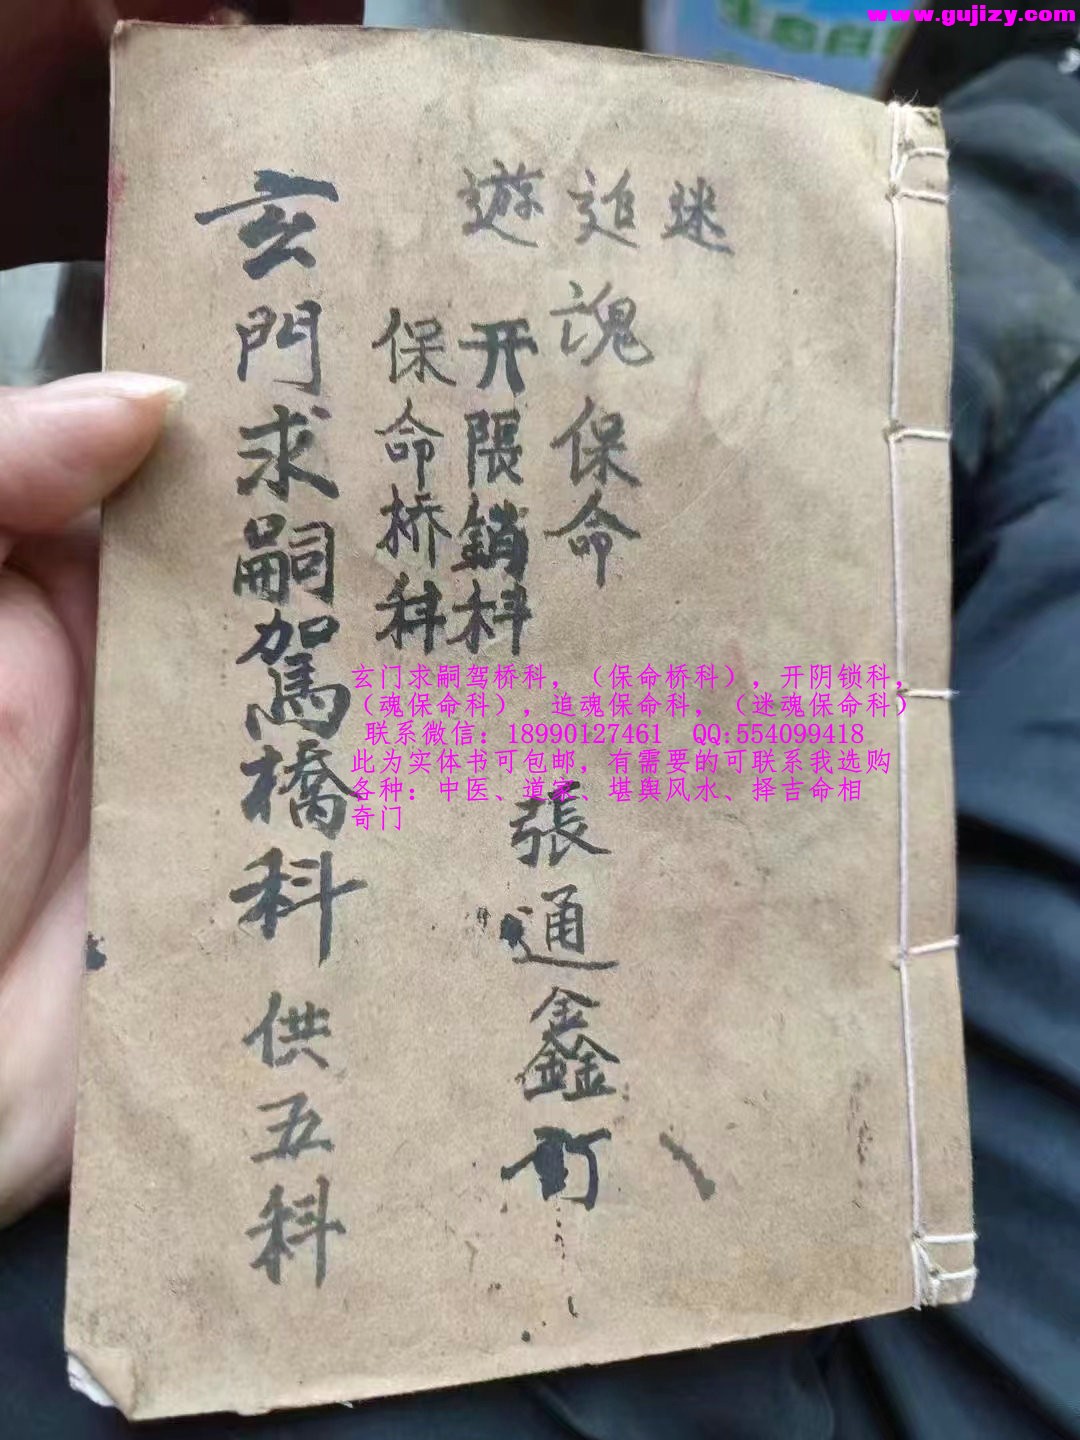 www.gujizy.com
迷
追
遊
魂保命
开限銷科
保命桥科
玄門求嗣駕橋科 供五科
張通鑫訂
玄门求嗣驾桥科，（保命桥科），开阴锁科，
（魂保命科），追魂保命科，（迷魂保命科）
联系微信：18990127461 QQ:554099418
此为实体书可包邮，有需要的可联系我选购
各种：中医、道家、堪舆风水、择吉命相
奇门